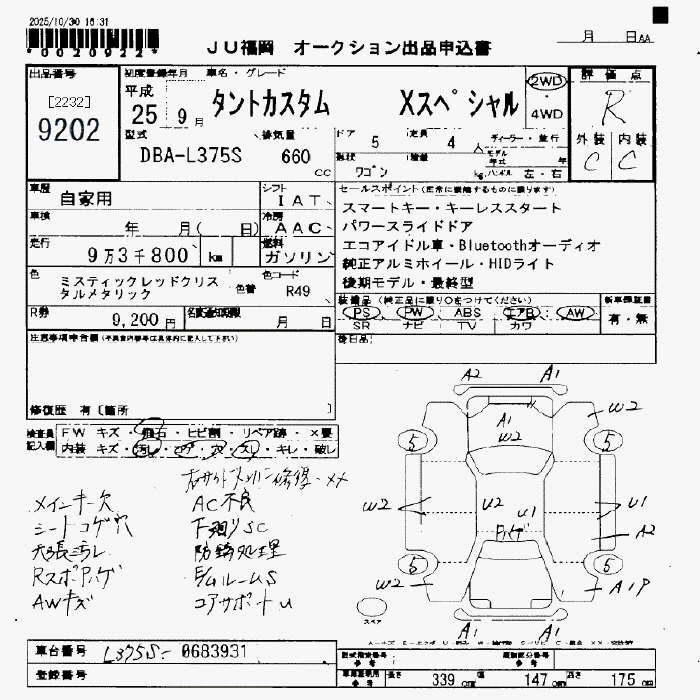 2025/10/30 16:31
*0020922*
JU福岡 オークション出品申込書
月 日 AA
出品番号 [2232] 9202
初度登録年月 平成 25 9月
車名・グレード タントカスタム Xスペシャル
2WD ・ 4WD
評価点 R
外装 C 内装 C
型式 DBA-L375S
排気量 660 cc
ドア 5 定員 4 人
ディーラー・並行
モデル年式 年
形状 ワゴン 積量 kg ハンドル 左・右
車歴 自家用
シフト IAT
車検 年 月( 日)
冷房 AAC
走行 9万3千800 km
燃料 ガソリン
色 ミスティックレッドクリスタルメタリック
色替
色コード R49
R券 9,200円
名義変更期限 月 日
セールスポイント(正常に機能するものに限ります)
スマートキー・キーレススタート
パワースライドドア
エコアイドル車・Bluetoothオーディオ
純正アルミホイール・HIDライト
後期モデル・最終型
装備品(純正品に限り○をつけてください)
PS PW ABS エアB AW
SR ナビ TV カワ
新車保証書 有・無
後日品
注意事項申告欄
修復歴 有〔箇所 〕
検査員記入欄
FW キズ・飛石・ヒビ割・リペア跡・×要
内装 キズ・汚レ・コゲ・穴・スレ・キレ・破レ
メインキー欠
シートコゲ穴
天張汚レ
Rスポアッゲ
AWキズ
AC不良
下廻りSC
防錆処理
E/GルームS
コアサポートU
A2 A1
A1
W2
W2
5 5
W2 U2 U1 U1
A2
5 5
W2 A1P
スペア
A1 A1
車台番号 L375S-0683931
登録番号
型式指定番号 参考
類別区分番号 参考
長さ 339 cm 幅 147 cm 高さ 175 cm